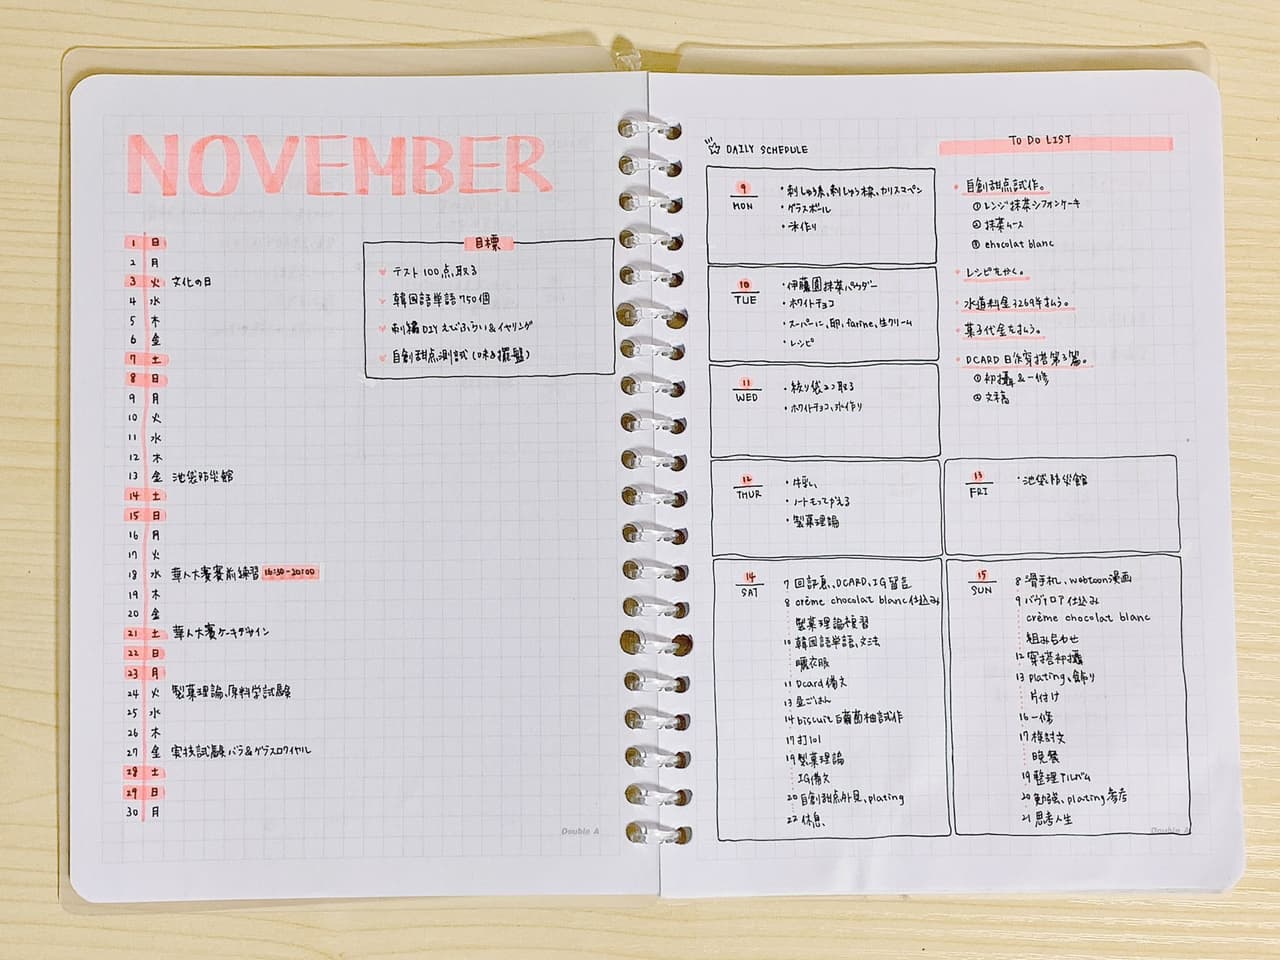 NOVEMBER
1 日
2 月
3 火 文化の日
4 水
5 木
6 金
7 土
8 日
9 月
10 火
11 水
12 木
13 金 池袋防災館
14 土
15 日
16 月
17 火
18 水 華人大賽賽前練習 16:30-20:00
19 木
20 金
21 土 華人大賽ケーキデザイン
22 日
23 月
24 火 製菓理論、原料学試験
25 水
26 木
27 金 実技試験バラ&グラスロワイヤル
28 土
29 日
30 月
目標
テスト100点取る
韓国語単語750個
刺繡DIYえびふらい&イヤリング
自創甜点測試(味&擺盤)
Double A
DAILY SCHEDULE
9 MON
・刺しゅう糸、刺しゅう棒、カリスマペン
・グラスボール
・氷作り
10 TUE
・伊藤園抹茶パウダー
・ホワイトチョコ
・スーパーに、卵、farine、生クリーム
・レシピ
11 WED
・絞り袋2つ取る
・ホワイトチョコ、氷作り
12 THUR
・牛乳
・ノートもってかえる
・製菓理論
13 FRI
・池袋防災館
14 SAT
7 回訊息、DCARD、IG留言
8 crème chocolat blanc仕込み
製菓理論複習
10 韓国語単語、文法
曬衣服
11 Dcard備文
13 昼ごはん
14 biscuit 白葡萄柚試作
17 打101
19 製菓理論
IG備文
20 自創甜点外見、plating
22 休息
15 SUN
8 滑手机、webtoon漫画
9 バヴァロア仕込み
crème chocolat blanc
組み合わせ
12 穿搭初攝
13 plating、飾り
片付け
16 一修
17 検討文
晩餐
19 整理アルバム
20 勉強、plating参考
21 思考人生
Double A
TO DO LIST
・自創甜点試作。
①レンジ抹茶シフォンケーキ
②抹茶ムース
③chocolat blanc
・レシピをかく。
・水道料金3269円払う。
・菓子代金を払う。
・DCARD日系穿搭第3篇。
①初攝&一修
②文稿